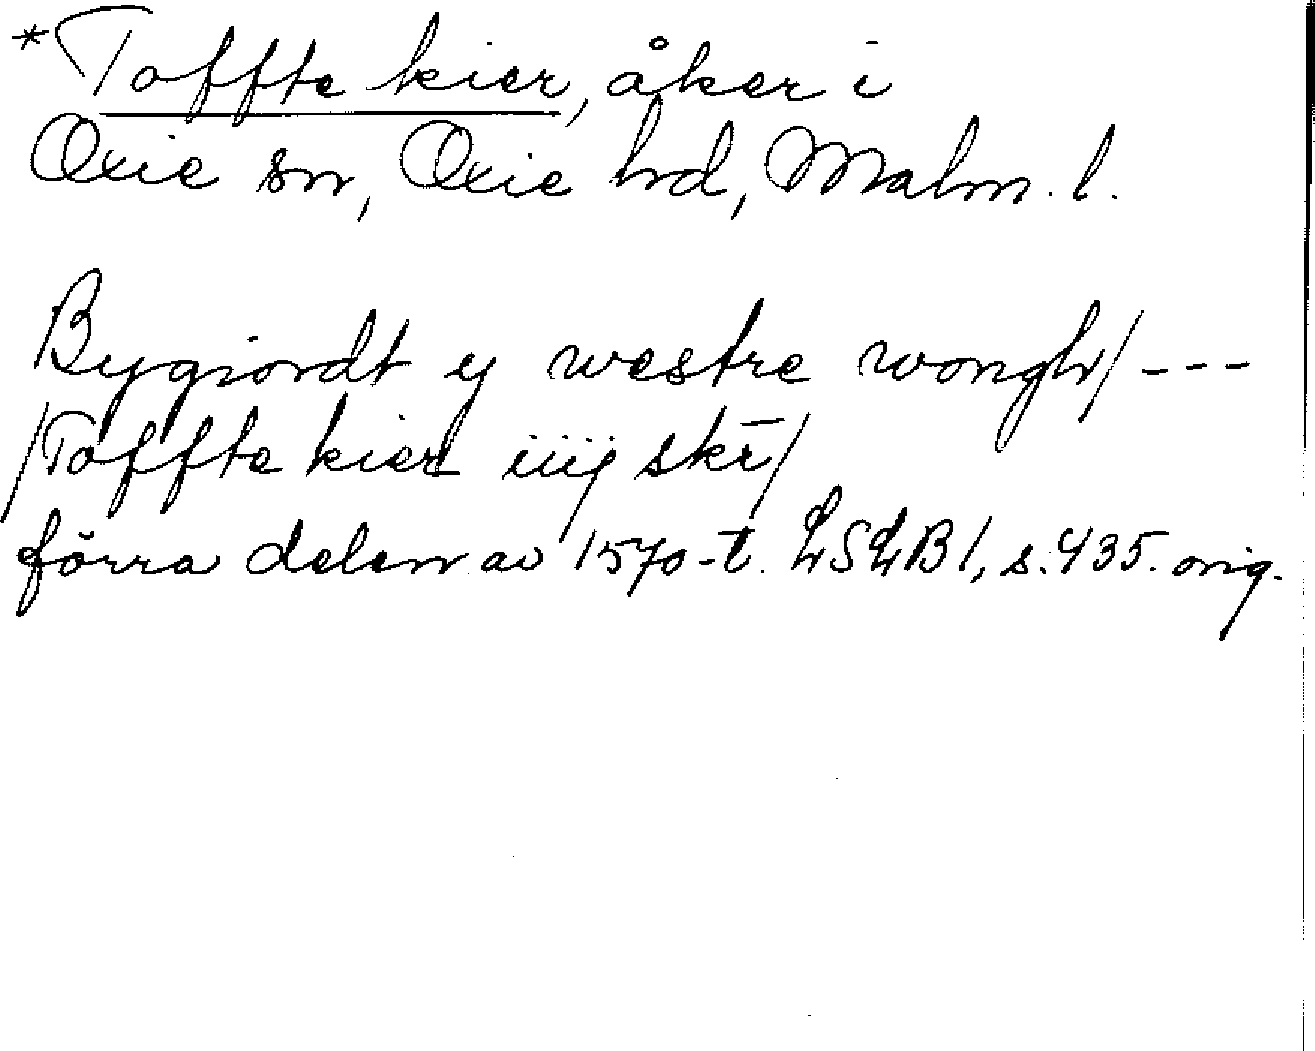 *Toffte kier, åker i
Oxie sn, Oxie hd, Malm. l.
Bygiordt y westre wongh/ ---
/Toffte kier iiij skr̄/
förra delen av 1570-t. LSLB 1, s. 435. orig.